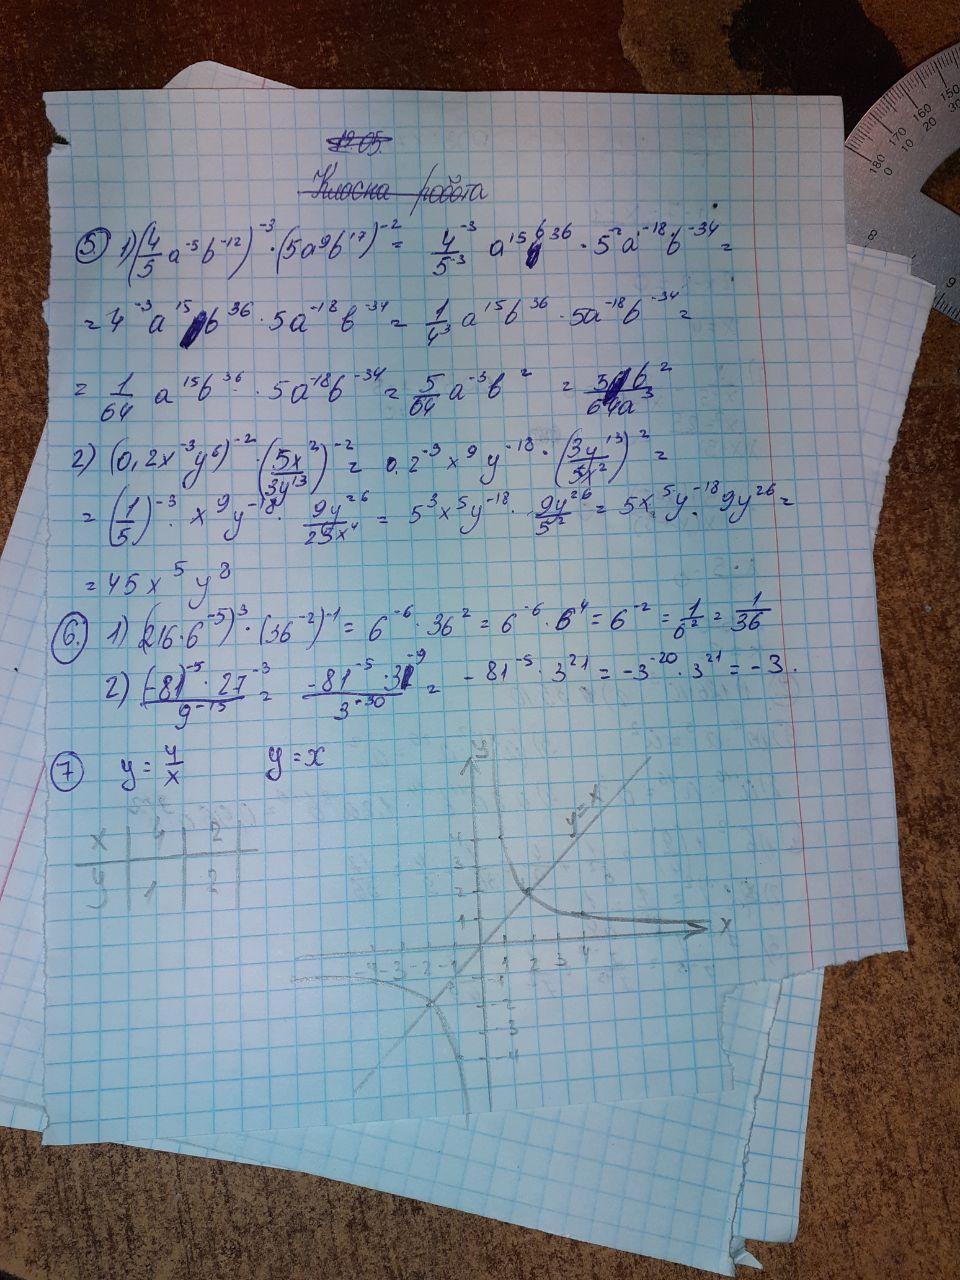 19.05.
Класна робота
5) 1) (4/5 a⁻⁵b⁻¹²)⁻³ · (5a⁹b¹⁷)⁻² = 4⁻³/5⁻³ a¹⁵b³⁶ · 5⁻²a⁻¹⁸b⁻³⁴ =
= 4⁻³a¹⁵b³⁶ · 5a⁻¹⁸b⁻³⁴ = 1/4³ a¹⁵b³⁶ · 5a⁻¹⁸b⁻³⁴ =
= 1/64 a¹⁵b³⁶ · 5a⁻¹⁸b⁻³⁴ = 5/64 a⁻³b² = 5b²/64a³
2) (0,2x⁻³y⁶)⁻² · (5x²/3y¹³)⁻² = 0,2⁻³x⁹y⁻¹⁸ · (3y¹³/5x²)² =
= (1/5)⁻³ · x⁹y⁻¹⁸ · 9y²⁶/25x⁴ = 5³x⁵y⁻¹⁸ · 9y²⁶/5² = 5x⁵y⁻¹⁸ · 9y²⁶ =
= 45x⁵y⁸
6.) 1) (216·6⁻⁵)³ · (36⁻²)⁻¹ = 6⁻⁶ · 36² = 6⁻⁶ · 6⁴ = 6⁻² = 1/6² = 1/36
2) (-81)⁻⁵ · 27⁻³/9⁻¹⁵ = -81⁻⁵ · 3⁻⁹/3⁻³⁰ = -81⁻⁵ · 3²¹ = -3⁻²⁰ · 3²¹ = -3.
7) y = 4/x y = x
x 4 2
y 1 2
y
y=x
4
3
2
1
x
-4 -3 -2 -1 1 2 3 4
-1
-2
-3
-4
180 170 160 150
0 10 20 30
8
9